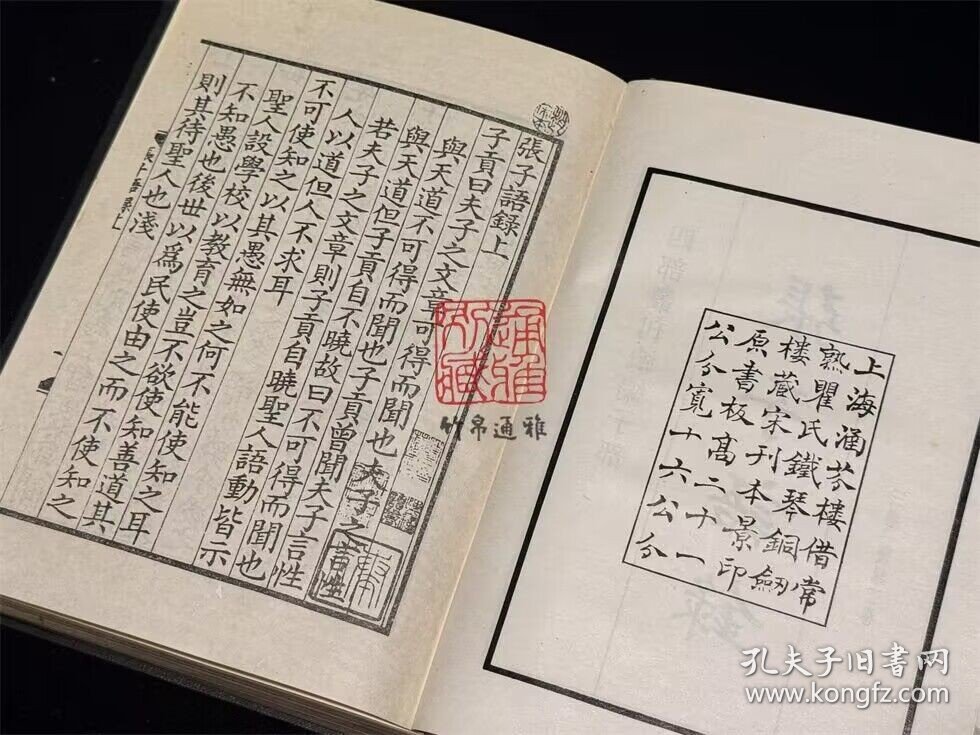 上海涵芬樓借常
熟瞿氏鐵琴銅劒
樓藏宋刊本景印
原書板高二十一
公分寬十六公分
張子語録上
子貢曰夫子之文章可得而聞也夫子之言性
與天道不可得而聞也子貢曾聞夫子言性
與天道但子貢自不曉故曰不可得而聞也
若夫子之文章則子貢自曉聖人語動皆示
人以道但人不求耳
不可使知之以其愚無如之何不能使知之耳
聖人設學校以教育之豈不欲使知善道其
不知愚也後世以爲民使由之而不使知之
則其待聖人也淺
竹帛通雅
孔夫子旧书网
www.kongfz.com